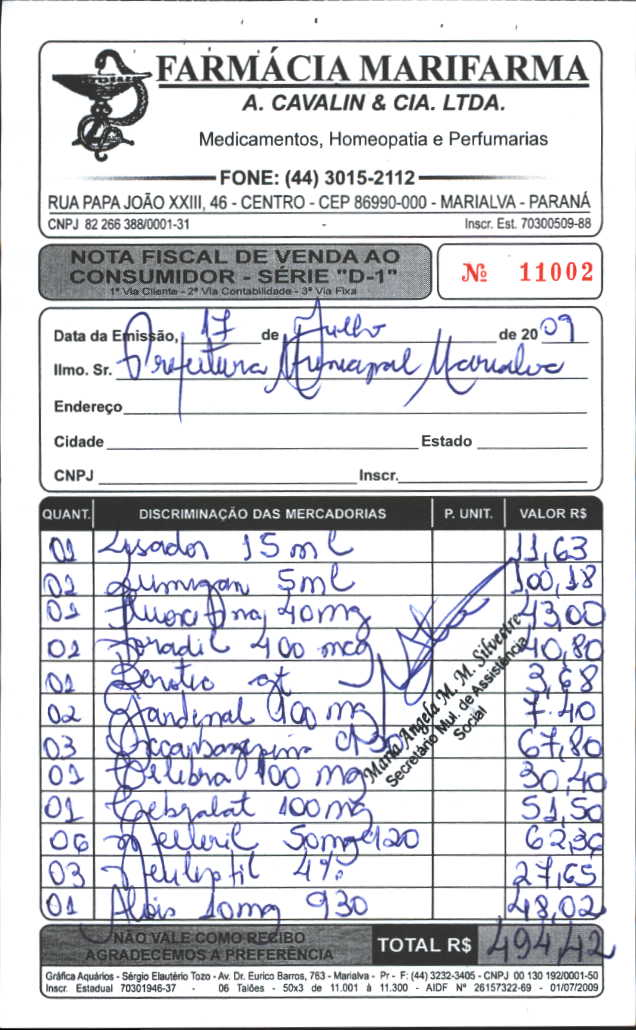 FARMÁCIA MARIFARMA
A. CAVALIN & CIA. LTDA.
Medicamentos, Homeopatia e Perfumarias
FONE: (44) 3015-2112
RUA PAPA JOÃO XXIII, 46 - CENTRO - CEP 86990-000 - MARIALVA - PARANÁ
CNPJ 82 266 388/0001-31 - Inscr. Est. 70300509-88
NOTA FISCAL DE VENDA AO
CONSUMIDOR - SÉRIE "D-1"
1ª Via Cliente - 2ª Via Contabilidade - 3ª Via Fixa
Nº 11002
Data da Emissão, 17 de Julho de 2009
Ilmo. Sr. Prefeitura Municipal Marialva
Endereço
Cidade Estado
CNPJ Inscr.
QUANT. DISCRIMINAÇÃO DAS MERCADORIAS P. UNIT. VALOR R$
01 Lisador 15 ml 11,63
02 Lumigan 5ml 100,18
01 40mg 43,00
01 Foradil 400 mcg 40,80
01 Berotec gt 3,68
02 Gardenal 100 mg 7.40
03 67,80
01 100 mg 30,40
01 100mg 51,50
06 Melleril 50mg c/20 62,36
03 Neuleptil 4% 27,65
01 Alois 10mg 930 48,02
Maria Angela M. M. Silvestre
Secretário Mul. de Assistência
Social
NÃO VALE COMO RECIBO
AGRADECEMOS A PREFERÊNCIA
TOTAL R$ 494,42
Gráfica Aquários - Sérgio Elautério Tozo - Av. Dr. Eurico Barros, 763 - Marialva - Pr - F: (44) 3232-3405 - CNPJ 00 130 192/0001-50
Inscr. Estadual 70301946-37 - 06 Talões - 50x3 de 11.001 à 11.300 - AIDF Nº 26157322-69 - 01/07/2009